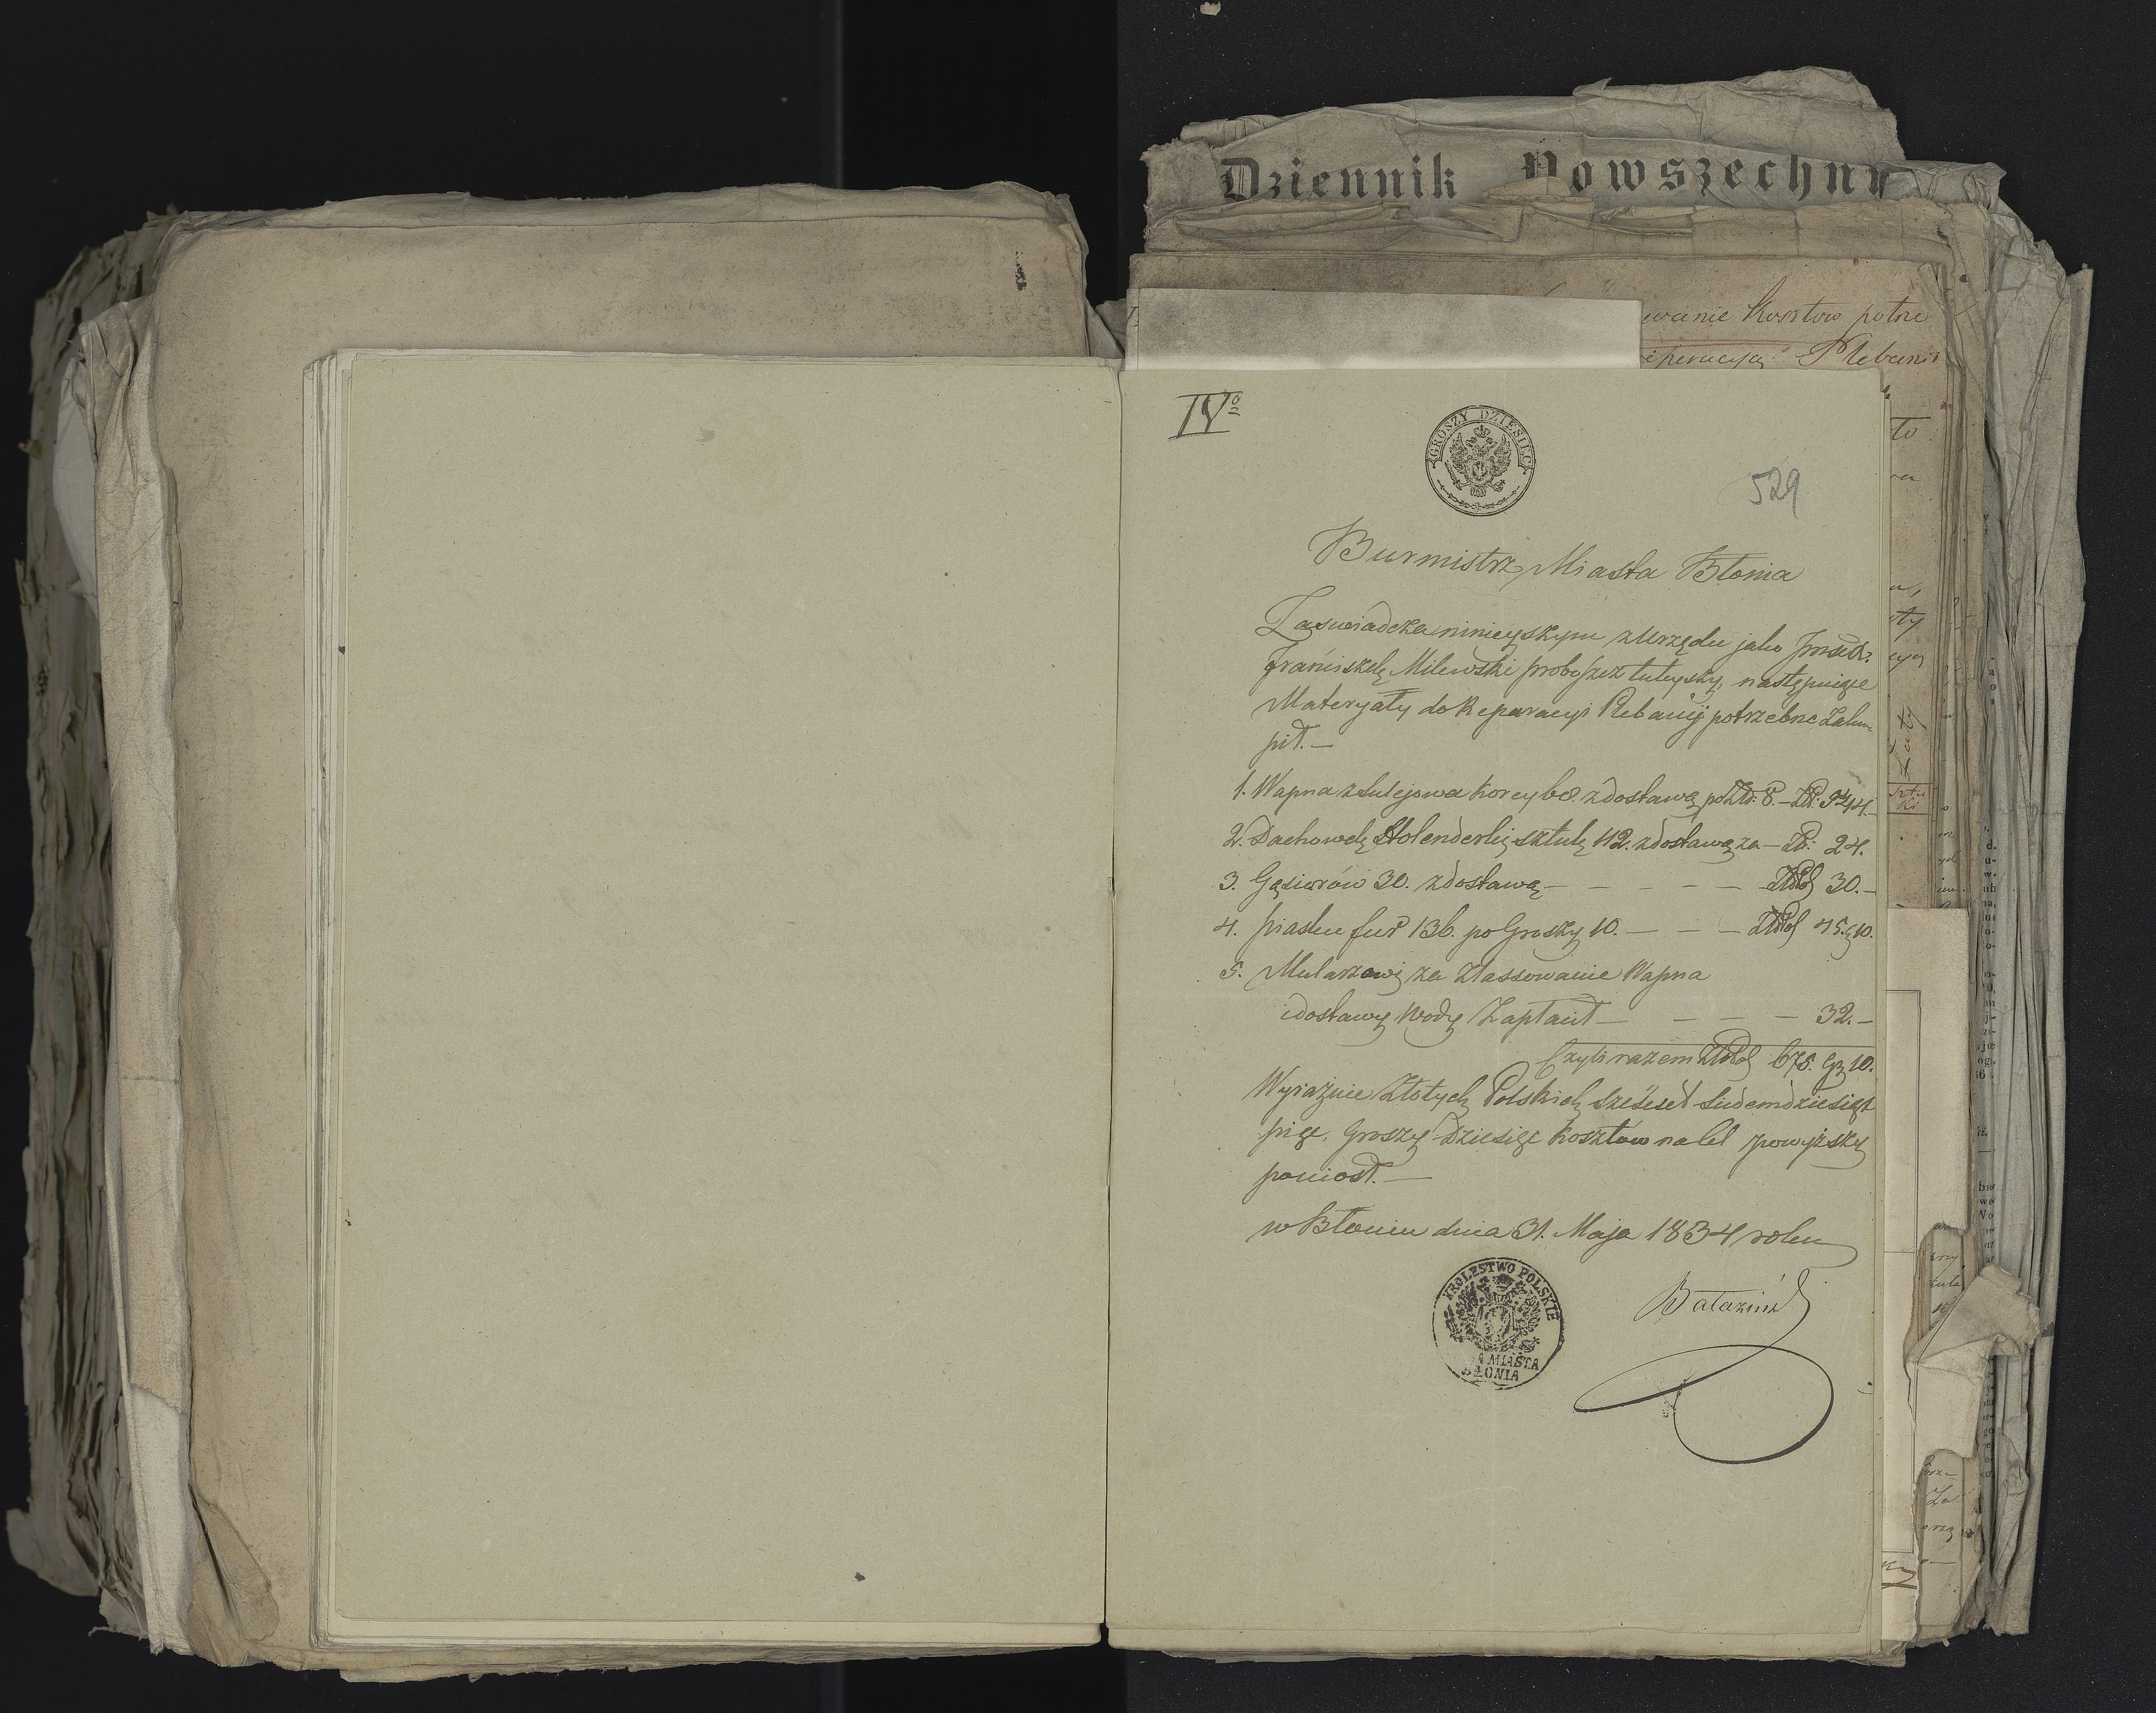 Dziennik Powszechny
wanie Kosztow potrze
peracyą Plebanii
IVo
GROSZY DZIESIĘĆ
529
Burmistrz Miasta Błonia
Zaswiadcza ninieyszym z Urzędu jako
Franciszek Milewski proboszcz tuteyszy następuiące
Materyały do Reparacyi Plebanij potrzebne Zaku-
pił.—
1. Wapna z Sulejowa Korcy 68. z dostawą po Złt: 8.— Złt: 544.
2. Dachowek Holenderek sztuk 112. z dostawą za — Zł: 24.
3. Gąsiorów 30. z dostawą — — — — — 30.—
4. piasku fur 136. po Groszy 10. — — — 45. g 10.
5. Mularzowi za Zlassowanie Wapna
i dostawę Wody Zapłacił — — — — — 32.—
Czyli razem 675. gr 10.
Wyraźnie Złotych Polskich sześćset siedemdziesiąt
pięć. Groszy Dziesięć kosztow na cel powyższy
poniosł.—
w Błoniu dnia 31. Maja 1834 roku
KRÓLESTWO POLSKIE
MIASTA
BŁONIA